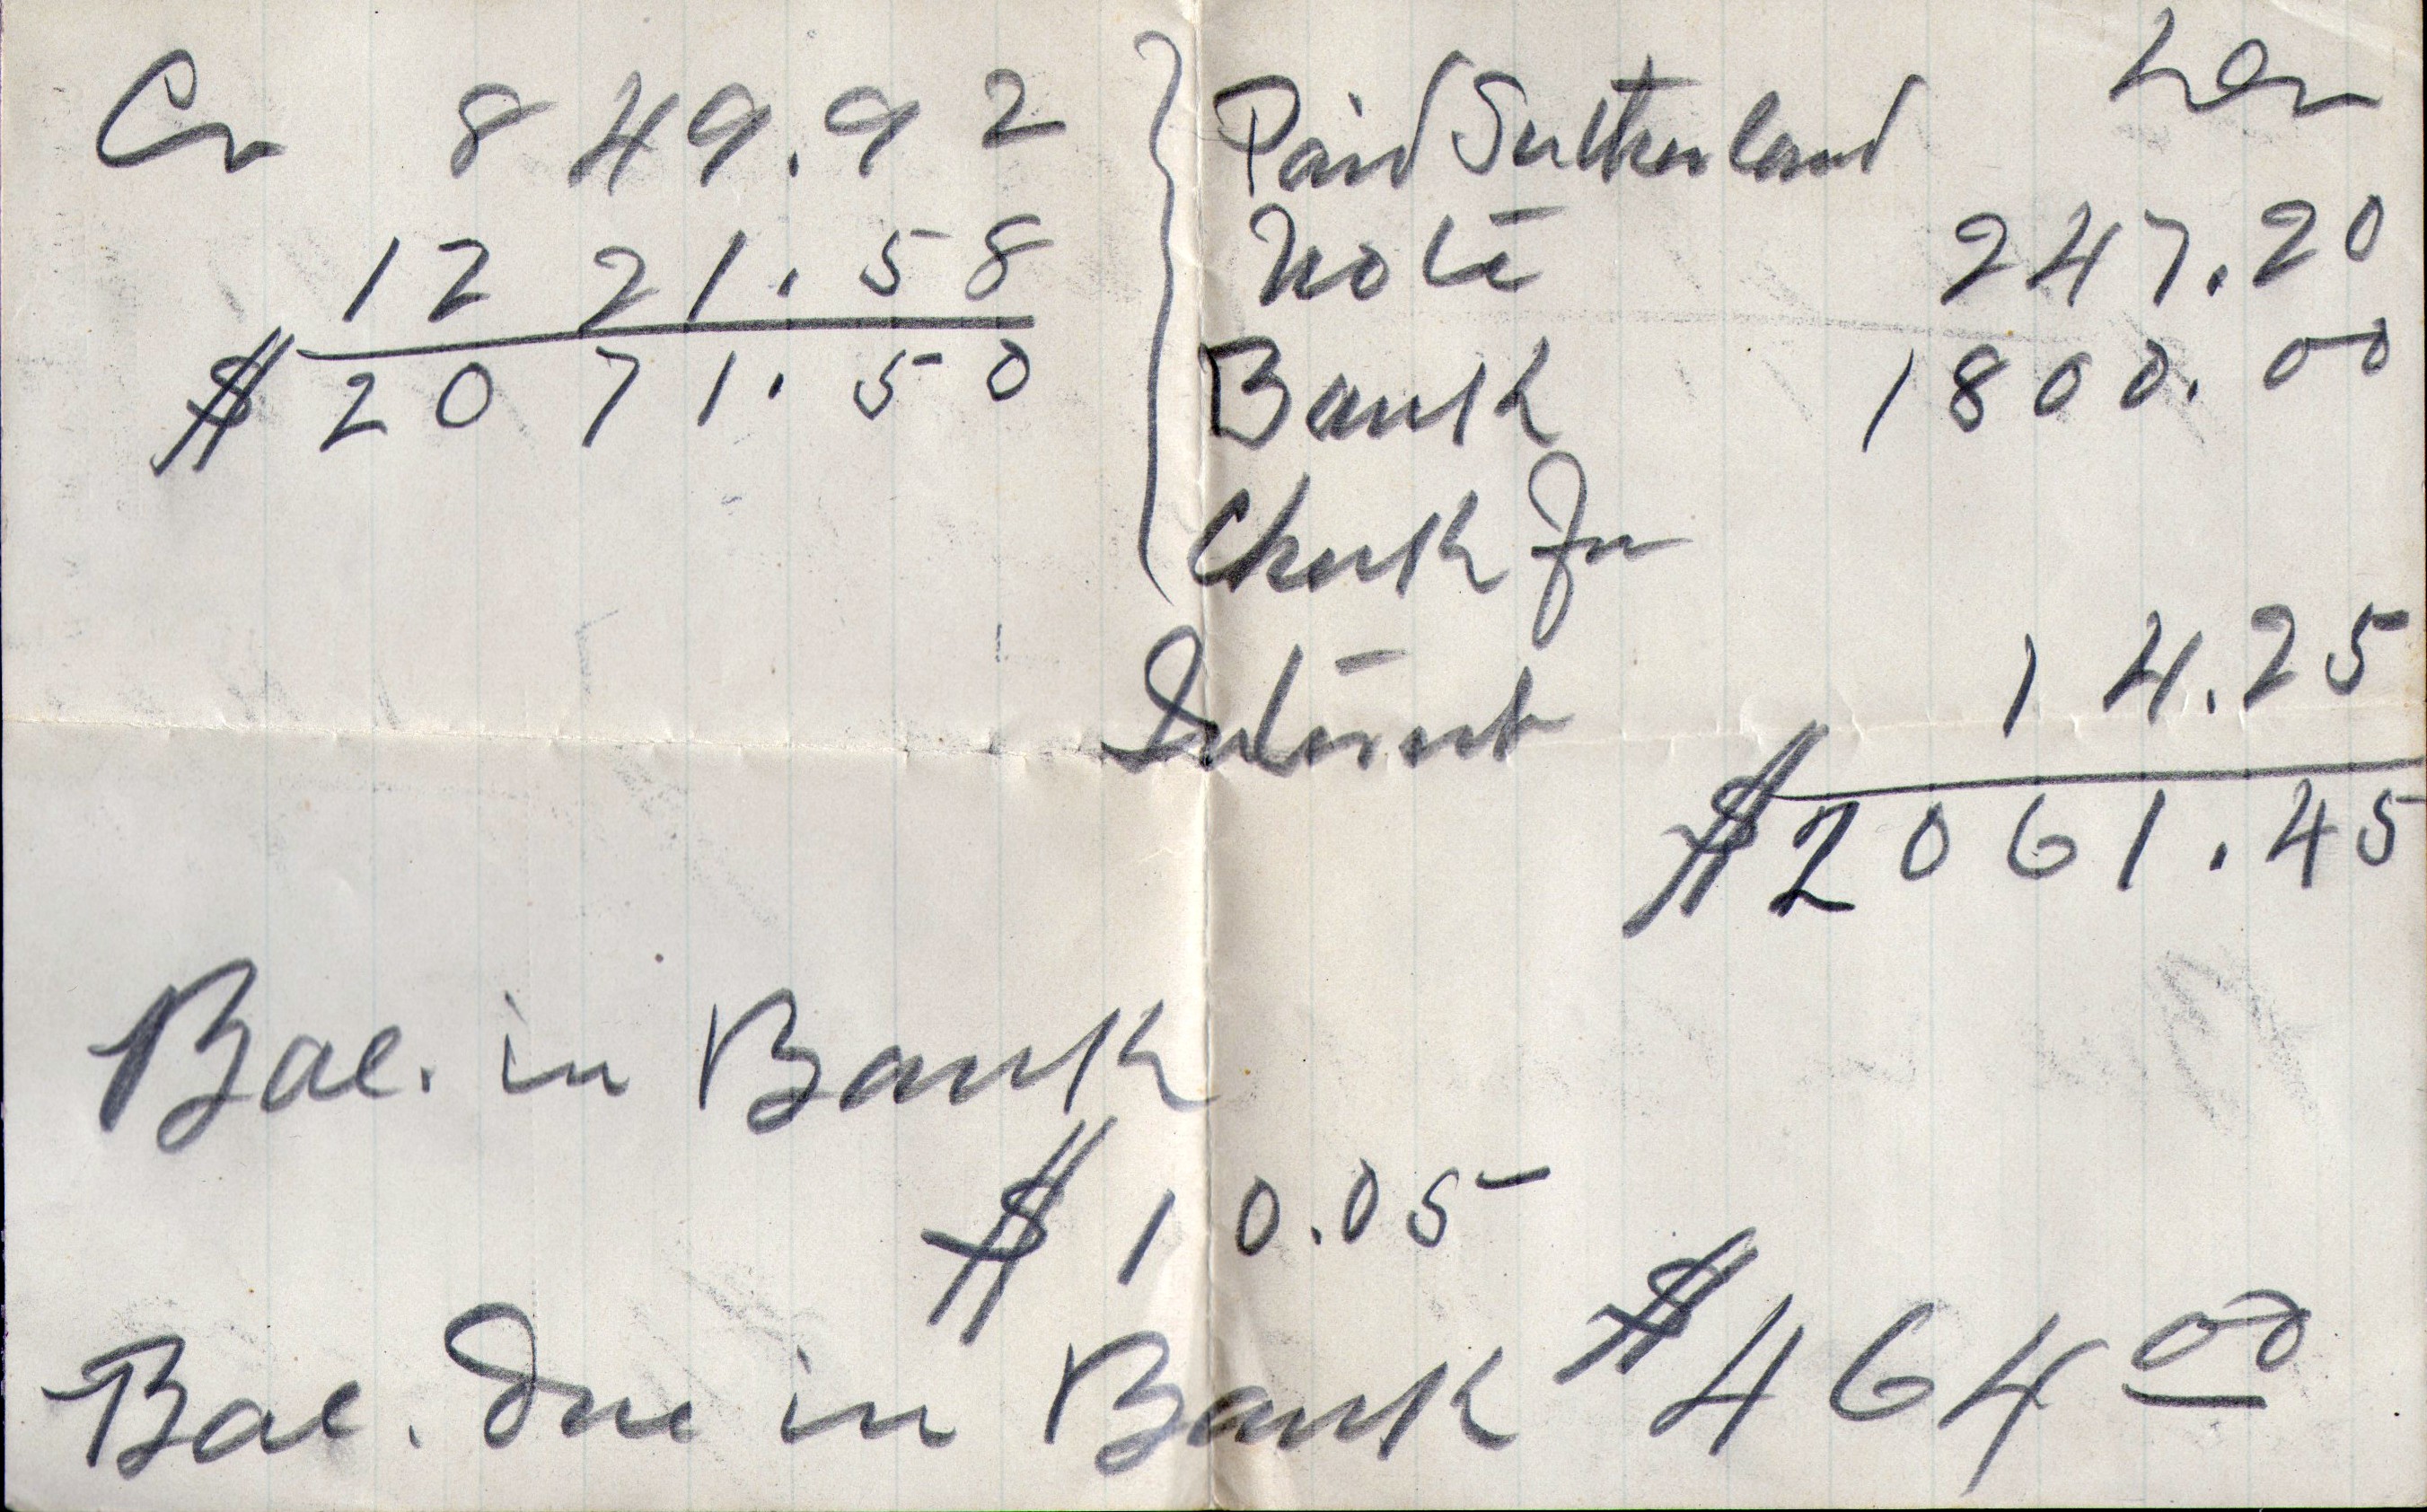 Cr 849.92
1221.58
$2071.50
Paid Sutherland
Note 247.20
Bank 1800.00
Check for
Interest 14.25
$2061.45
Bal. in Bank
$10.05
Bal. due in Bank $464 00